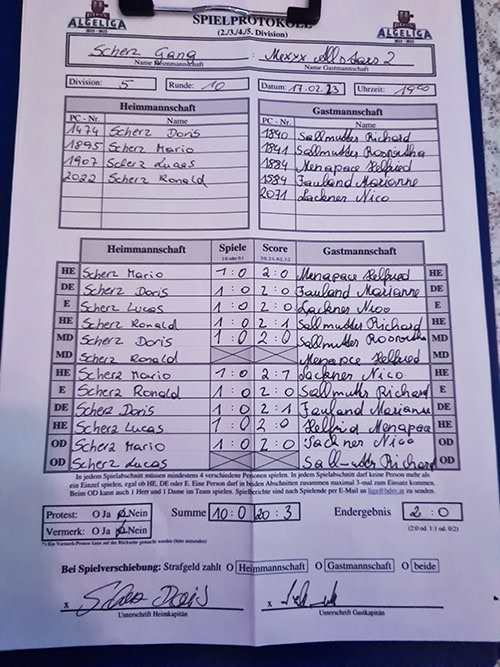 ALGELIGA
SPIELPROTOKOLL
ALGELIGA
(2./3./4./5. Division)
Scherz Gang : Mexxx Allstars 2
Name Heimmannschaft Name Gastmannschaft
Division: 5 Runde: 10 Datum: 17.02.23 Uhrzeit: 19:00
Heimmannschaft Gastmannschaft
PC - Nr. Name PC - Nr. Name
1474 Scherz Doris 1840 Sallmutter Richard
1895 Scherz Mario 1841 Sallmutter
1907 Scherz Lucas 1884 Menapace Helfried
2022 Scherz Ronald 1584 Fauland Marianne
2071 Lackner Nico
Heimmannschaft Spiele Score Gastmannschaft
1:0 oder 0:1 2:0, 2:1, 0:2, 1:2
HE Scherz Mario 1 : 0 2 : 0 Menapace Helfried HE
DE Scherz Doris 1 : 0 2 : 0 Fauland Marianne DE
E Scherz Lucas 1 : 0 2 : 0 Lackner Nico E
HE Scherz Ronald 1 : 0 2 : 1 Sallmutter Richard HE
MD Scherz Doris 1 : 0 2 : 0 Sallmutter MD
MD Scherz Ronald Menapace Helfried MD
HE Scherz Mario 1 : 0 2 : 1 Lackner Nico HE
E Scherz Ronald 1 : 0 2 : 0 Sallmutter Richard E
DE Scherz Doris 1 : 0 2 : 1 Fauland Marianne DE
HE Scherz Lucas 1 : 0 2 : 0 Helfrid Menapace HE
OD Scherz Mario 1 : 0 2 : 0 Lackner Nico OD
OD Scherz Lucas Sallmutter Richard OD
In jedem Spielabschnitt müssen mindestens 4 verschiedene Personen spielen. In jedem Spielabschnitt darf keine Person mehr als
ein Einzel spielen, egal ob HE, DE oder E. Eine Person darf in beiden Abschnitten zusammen maximal 3-mal zum Einsatz kommen.
Beim OD kann auch 1 Herr und 1 Dame im Team spielen. Spielberichte sind nach Spielende per E-Mail an zu senden.
Protest: O Ja O Nein Summe 10 : 0 20 : 3 Endergebnis 2 : 0
Vermerk: O Ja O Nein (2:0 od. 1:1 od. 0:2)
*) Ein Vermerk/Protest kann auf der Rückseite gemacht werden (bitte ankreuzen)
Bei Spielverschiebung: Strafgeld zahlt O Heimmannschaft O Gastmannschaft O beide
x Scherz Doris x
Unterschrift Heimkapitän Unterschrift Gastkapitän